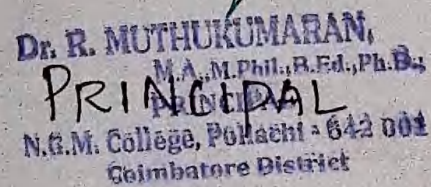 Dr. R. MUTHUKUMARAN,
M.A.,M.Phil.,B.Ed.,Ph.D.,
PRINCIPAL
PRINCIPAL
N.G.M. College, Pollachi - 642 001
Coimbatore District